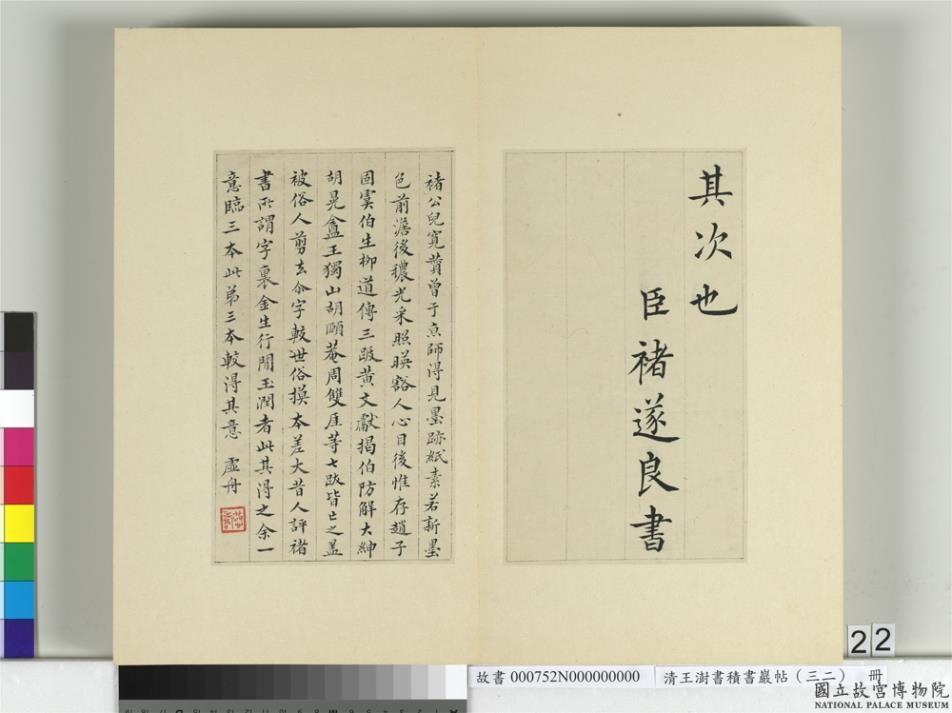 其次也
臣褚遂良書
褚公兒寬贊曾于京師得見墨跡紙素若新墨
色前澹後穠光采照暎豁人心目後惟存趙子
固虞伯生柳道傳三跋黃文獻揭伯防解大紳
胡晃盦王獨山胡頤菴周雙厓等七跋皆亡之蓋
被俗人剪去尒字較世俗摸本差大昔人評褚
書所謂字裏金生行間玉潤者此其得之余一
意臨三本此第三本較得其意 虛舟
22
故書 000752N000000000 清王澍書積書巖帖(三二) 冊
國立故宮博物院
NATIONAL PALACE MUSEUM